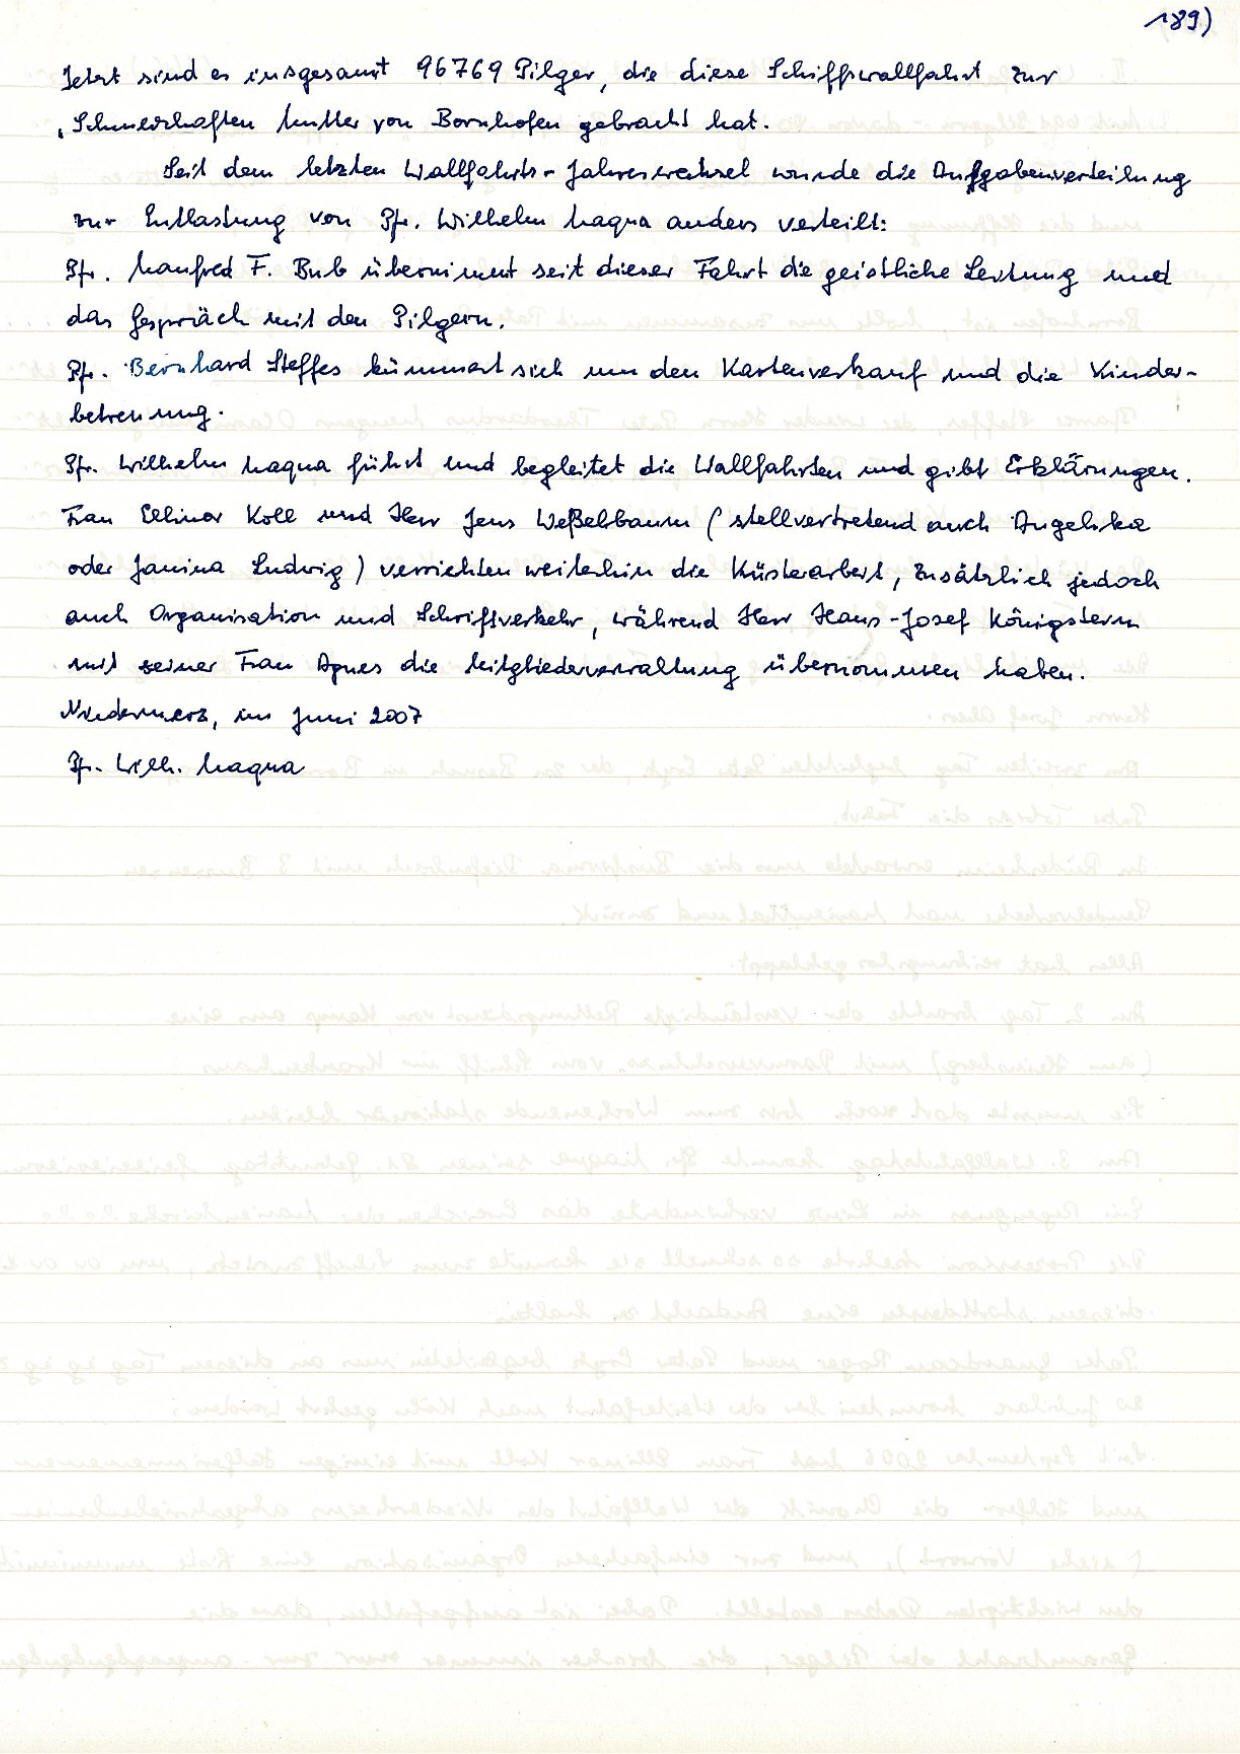 189)
Jetzt sind es insgesamt 96769 Pilger, die diese Schiffswallfahrt zur
"Schmerzhaften Mutter von Bornhofen gebracht hat.
Seit dem letzten Wallfahrts-Jahreswechsel wurde die Aufgabenverteilung
zur Entlastung von Pfr. Wilhelm Maqua anders verteilt:
Pfr. Manfred F. Bub übernimmt seit dieser Fahrt die geistliche Leitung und
das Gespräch mit den Pilgern.
Pfr. Bernhard Steffes kümmert sich um den Kartenverkauf und die Kinder-
betreuung.
Pfr. Wilhelm Maqua führt und begleitet die Wallfahrten und gibt Erklärungen.
Frau Ellinor Koll und Herr Jens Weßelbaum (stellvertretend auch Angelika
oder Janina Ludwig) verrichten weiterhin die Küsterarbeit, zusätzlich jedoch
auch Organisation und Schriftverkehr, während Herr Hans-Josef Königstein
mit seiner Frau Agnes die Mitgliederverwaltung übernommen haben.
Niedermerz, im Juni 2007
Pfr. Wilh. Maqua